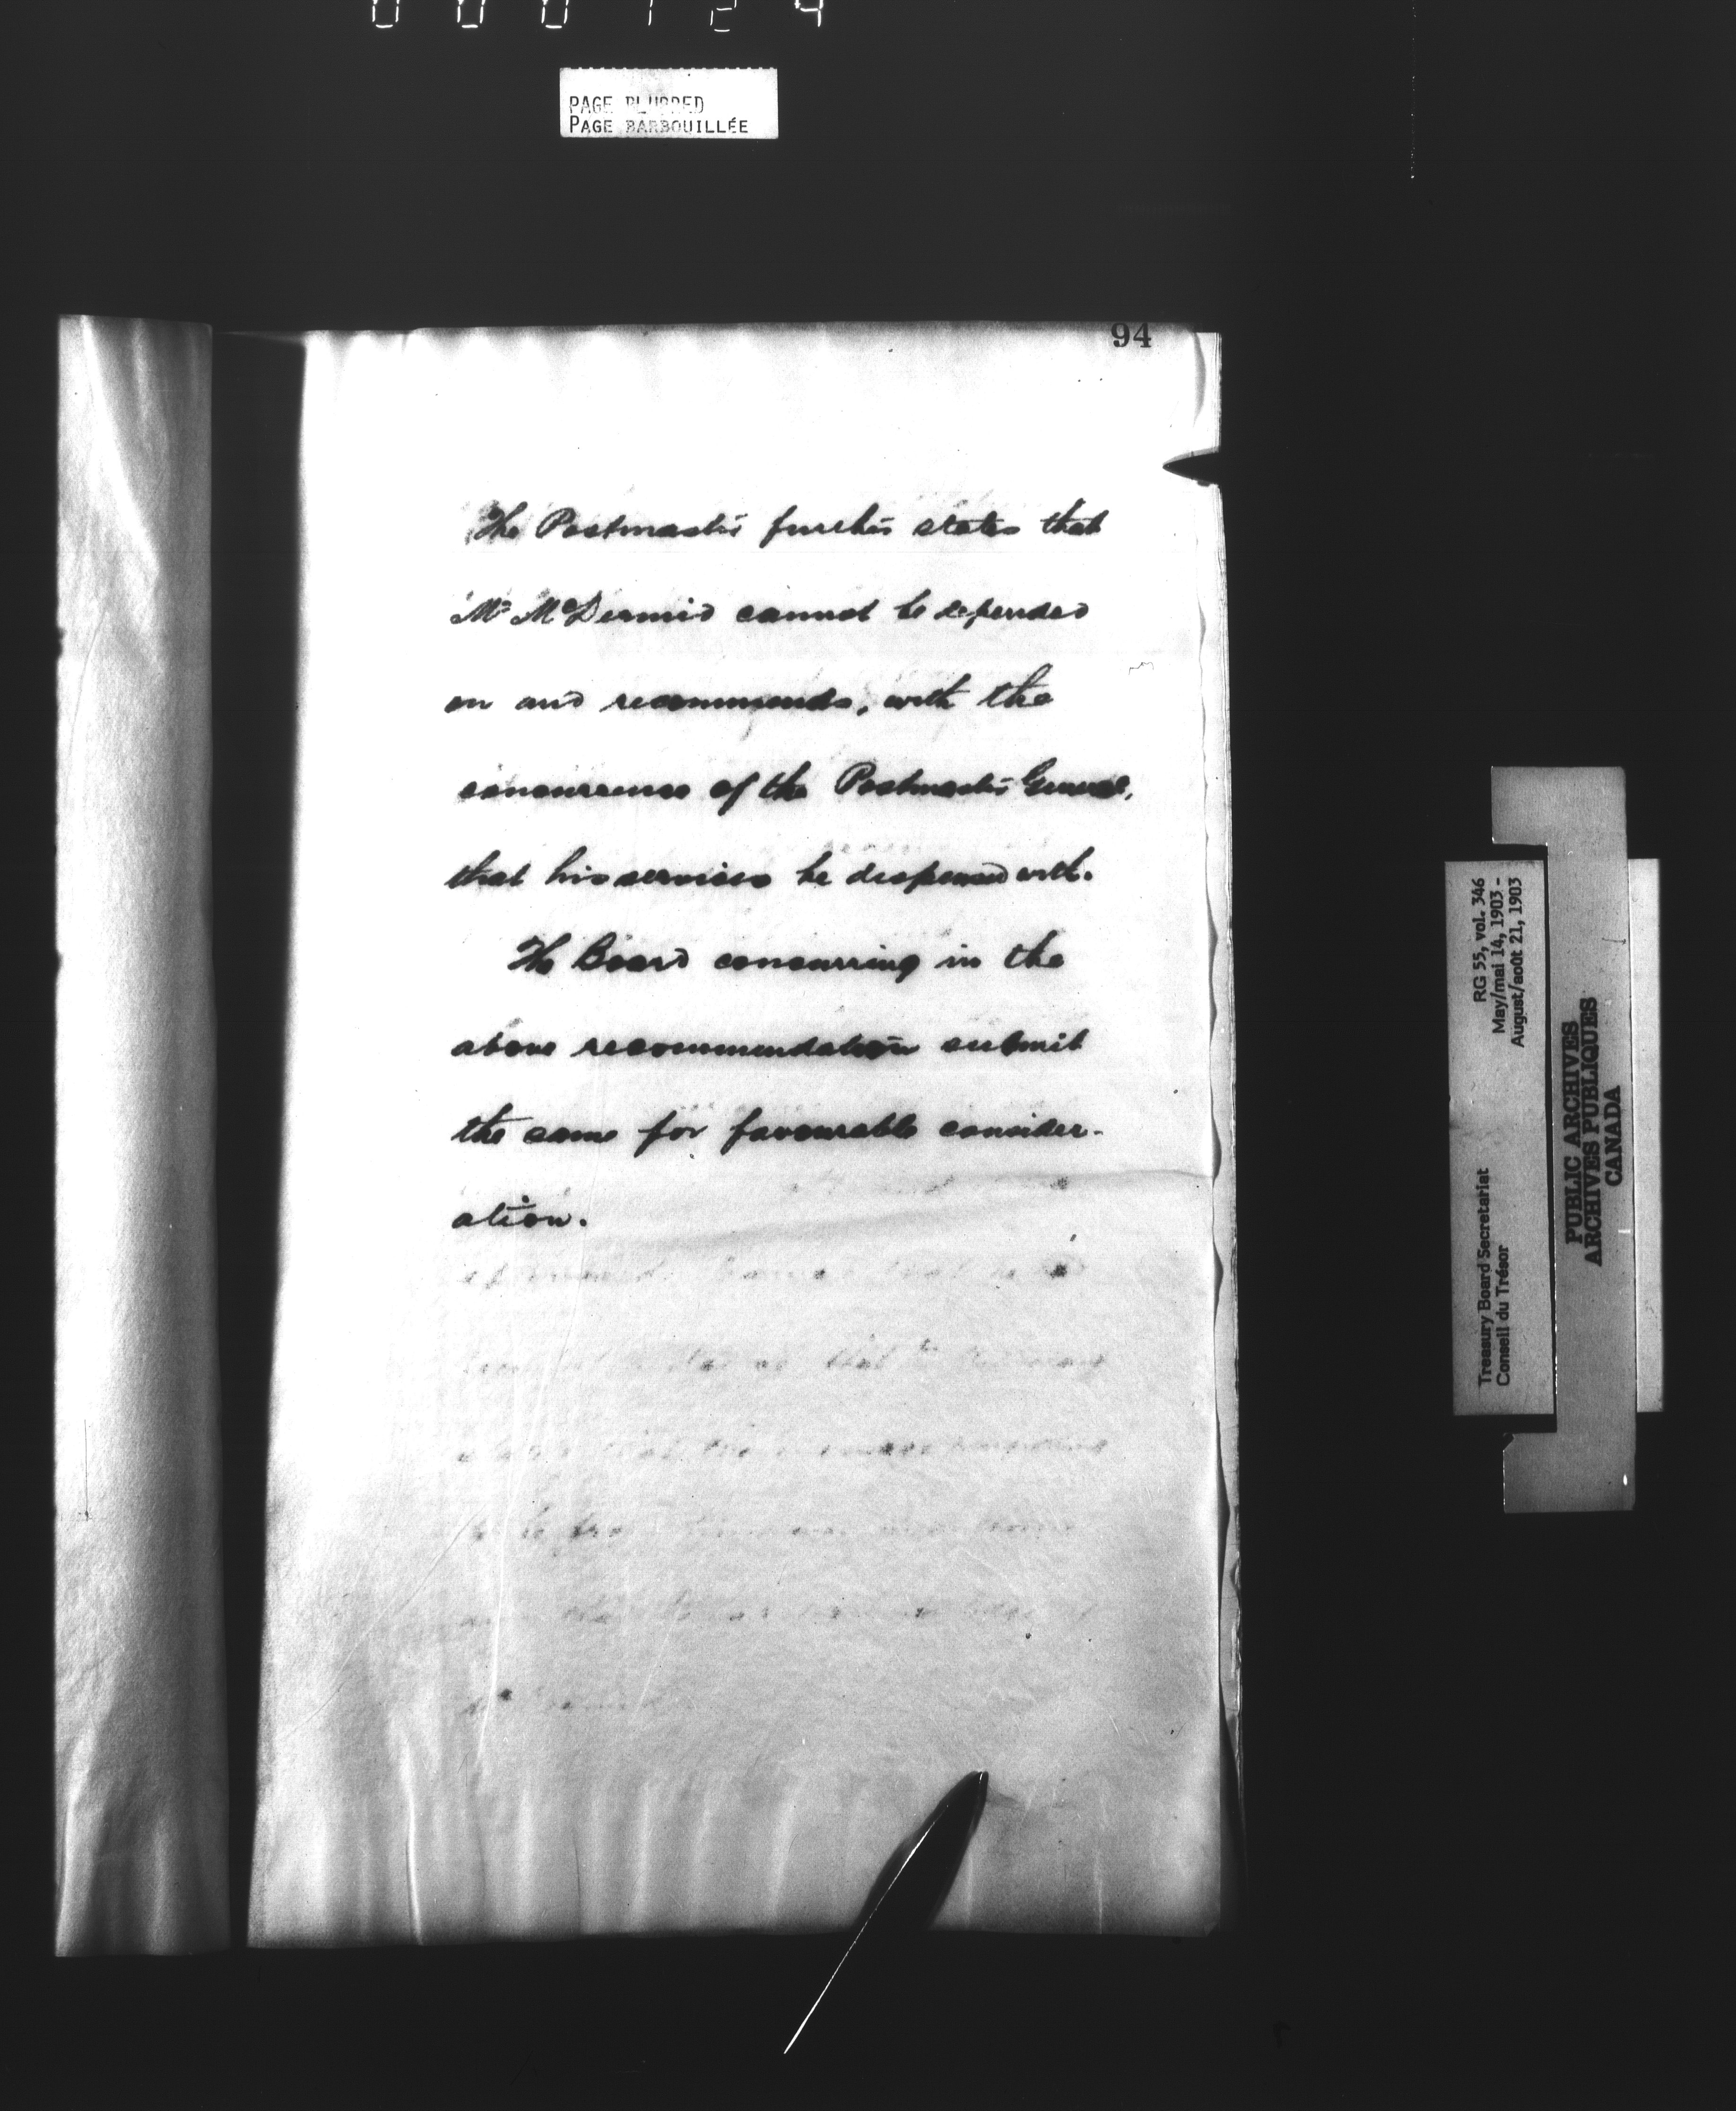 000124
PAGE BLURRED
PAGE BARBOUILLÉE
94
The Postmaster further states that
Mr McDermid cannot be depended
on and recommends, with the
concurrence of the Postmaster General,
that his services be dispensed with.
The Board concurring in the
above recommendation submit
the same for favourable consider-
ation.
RG 55, vol. 346
May/mai 14, 1903 -
August/août 21, 1903
Treasury Board Secretariat
Conseil du Trésor
PUBLIC ARCHIVES
ARCHIVES PUBLIQUES
CANADA